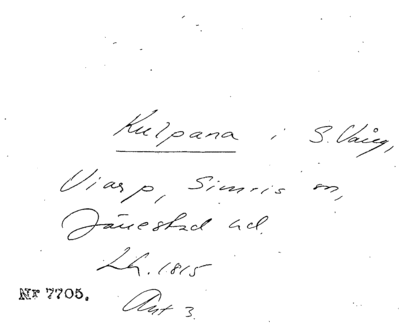 Kulpana i S. Vång,
Viarp, Simris sn,
Järrestad hd.
Lh. 1815
Nr 7705.
Ant 3